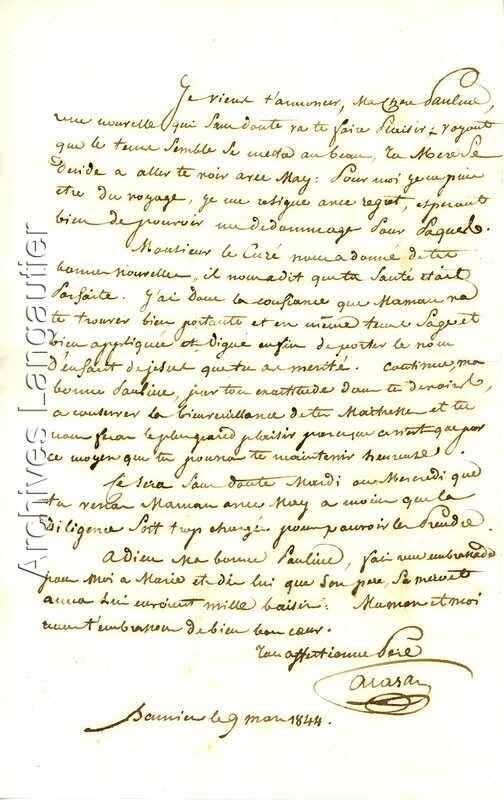 Je viens t'annoncer, Ma Chere Pauline,
une nouvelle qui sans doute va te faire Plaisir; voyant
que le tems semble se mettre au beau, ta Mere se
decide a aller te voir avec May: Pour moi je ne puis
etre du voyage, je me resigne avec regret, esperant
bien de pouvoir me dedommager Pour Paques.
Monsieur le Curé nous a donné de tes
bonnes nouvelles, il nous a dit que ta Santé etait
Parfaite. J'ai donc la confiance que Maman va
te trouver bien portante et en même tems Sage et
bien appliquée et Digne enfin de porter le nom
d'enfant de jesus que tu as merité. Continue, ma
bonne Pauline, par ton exactitude dans tes devoirs,
a conserver la bienveillance de tes Maitresses et tu
nous feras le plus grand plaisir parceque ce n'est que par
ce moyen que tu pourras te maintenir heureuse.
Ce Sera Sans doute Mardi ou Mercredi que
tu verras Maman avec May a moins que la
Diligence Soit trop chargée pour pouvoir les Prendre
Adieu Ma bonne Pauline, fais une embrassade
pour Moi a Marie et dis lui que Son pere, Sa mere et
anna lui envoient mille baisers. Maman et moi
nous t'embrassons de bien bon cœur.
Ton affectionné Pere
le 9 mars 1844.
Archives Langautier